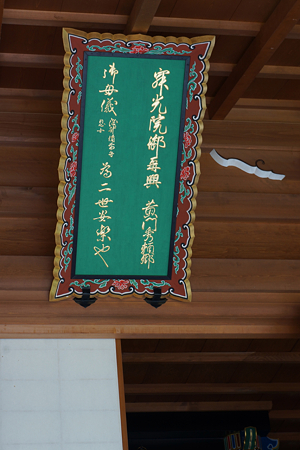 寂光院御再興 黄門秀頼卿
御母儀 浅井備前守息女 為二世安楽也